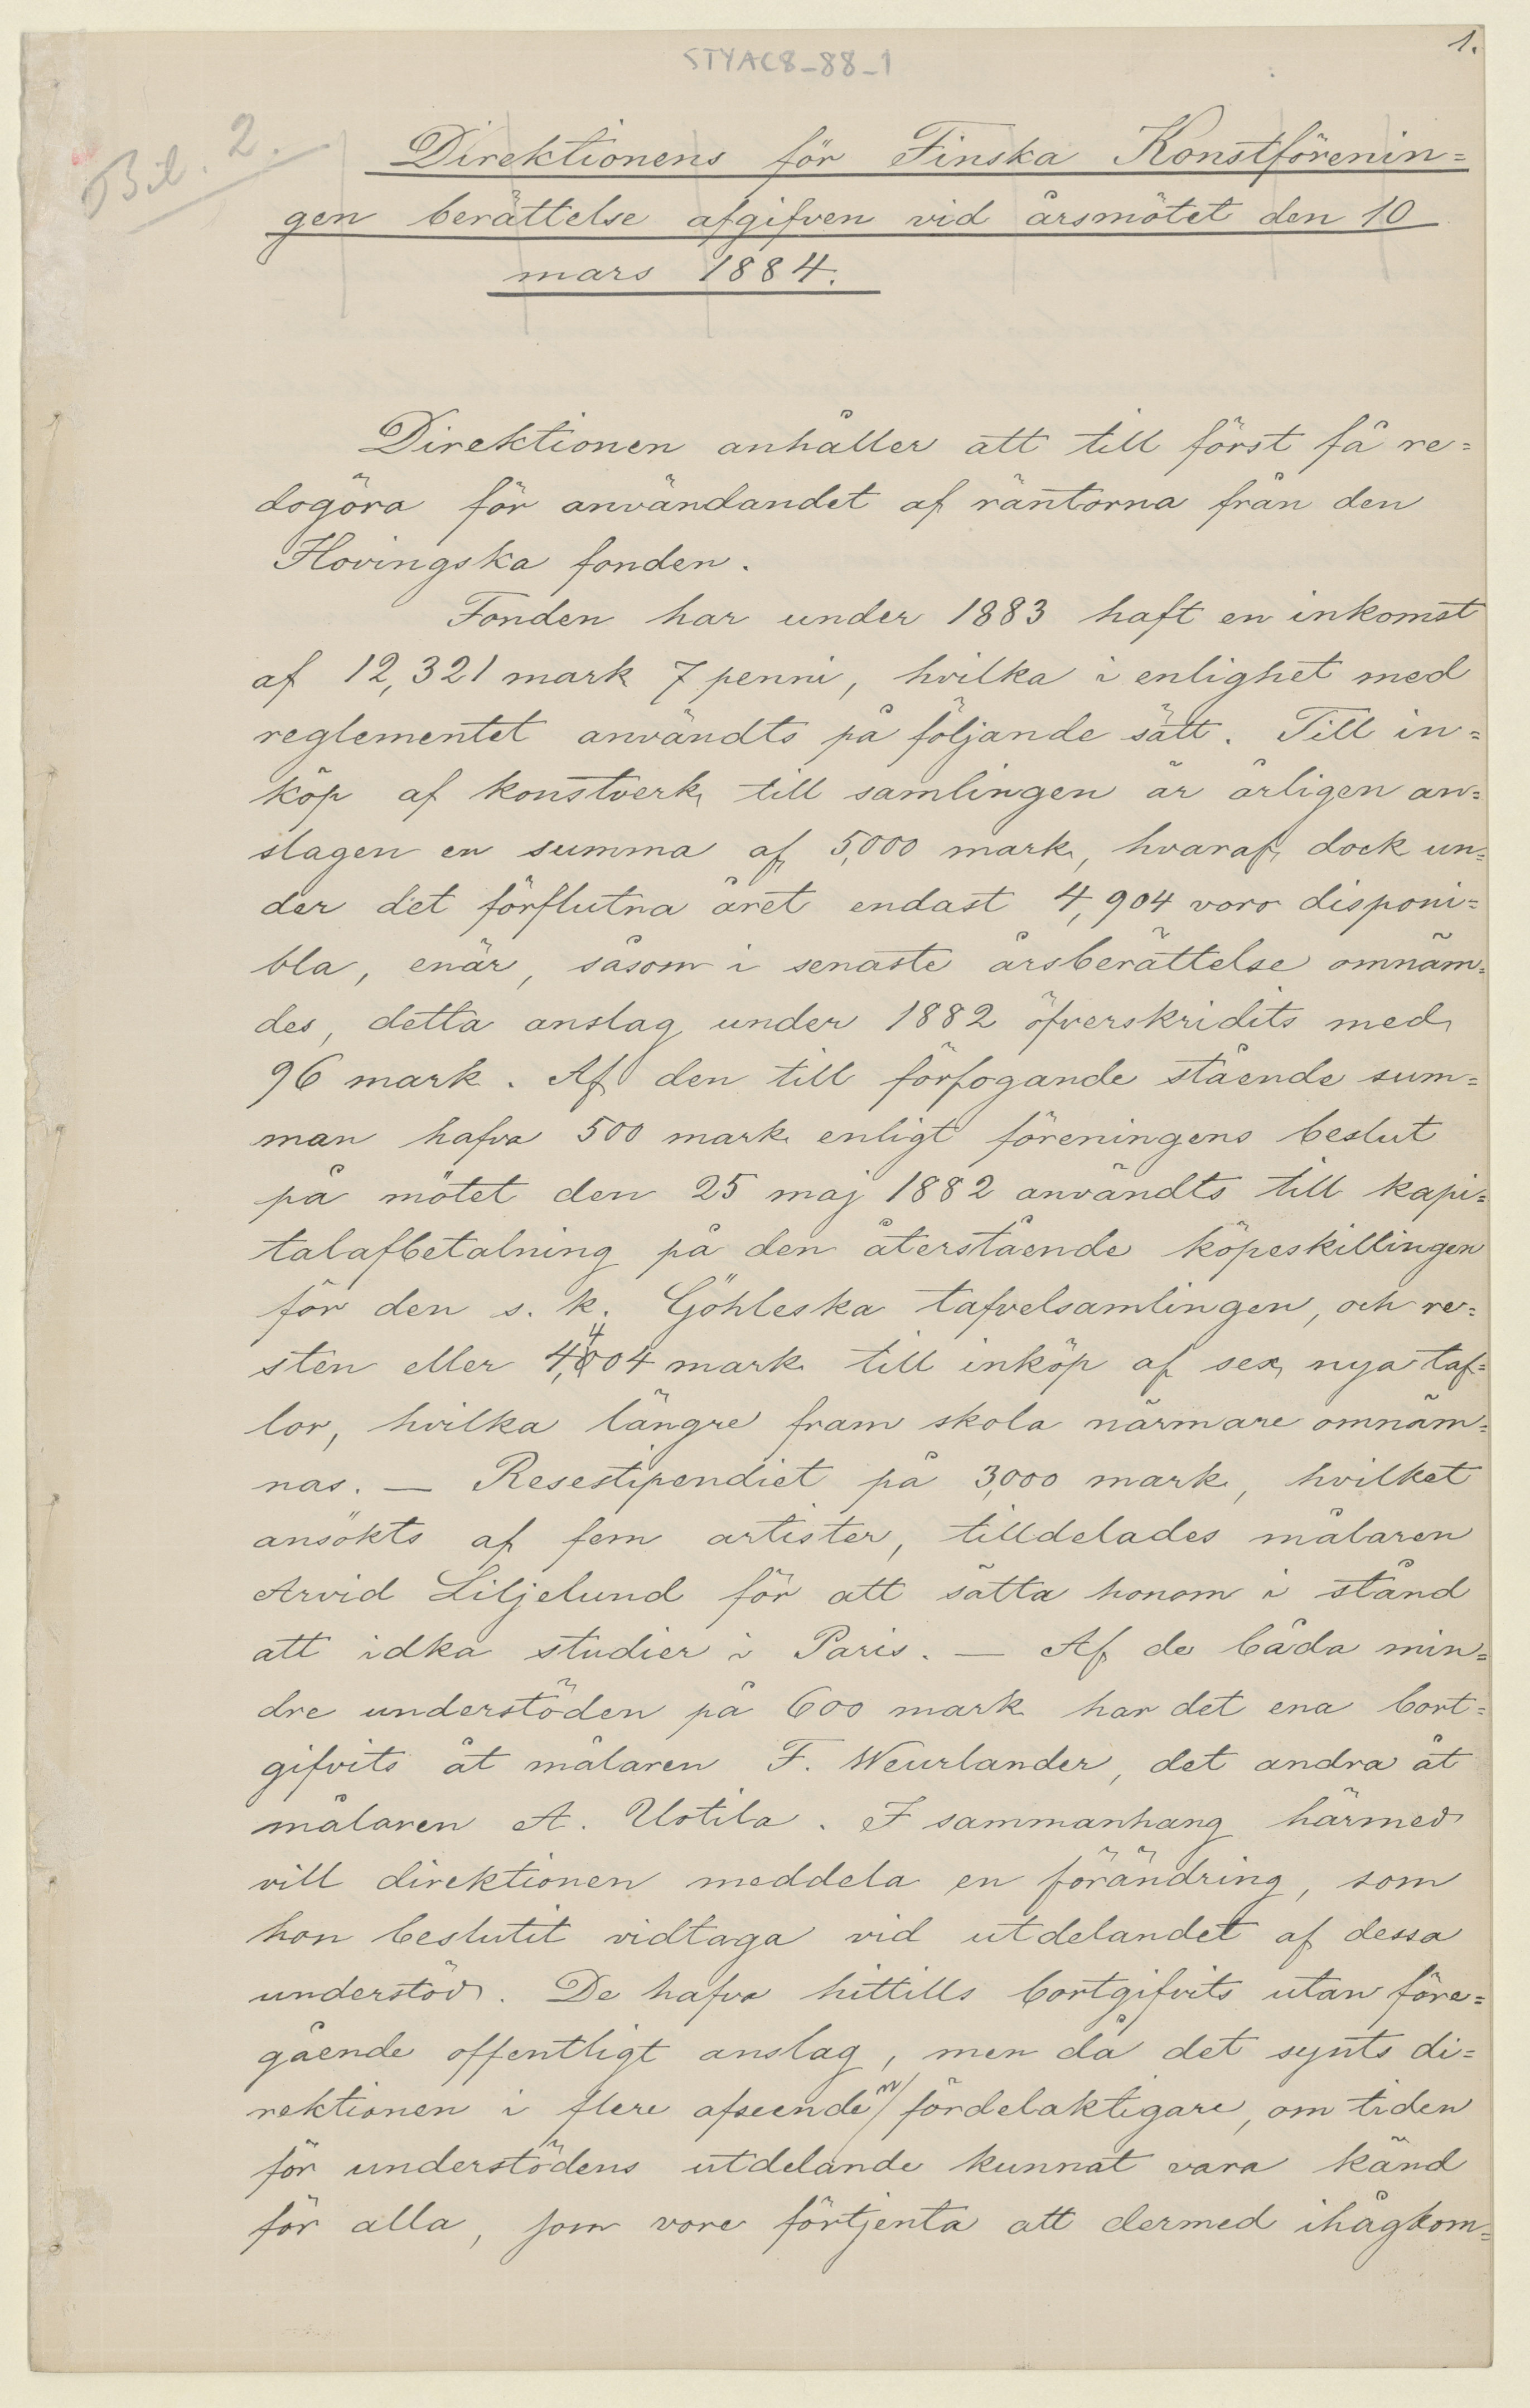 1.
STYAC8_88_1
Bil. 2.
Direktionens för Finska Konstförenin=
gen berättelse afgifven vid årsmötet den 10
mars 1884.
Direktionen anhåller att till först få re=
dogöra för användandet af räntorna från den
Hovingska fonden.
Fonden har under 1883 haft en inkomst
af 12,321 mark 7 penni, hvilka i enlighet med
reglementet användts på följande sätt. Till in=
köp af konstverk till samlingen är årligen an=
slagen en summa af 5,000 mark, hvaraf dock un=
der det förflutna året endast 4,904 voro disponi=
bla, enär, såsom i senaste årsberättelse omnäm=
des, detta anslag under 1882 öfverskridits med
96 mark. Af den till förfogande stående sum=
man hafva 500 mark enligt föreningens beslut
på mötet den 25 maj 1882 användts till kapi=
talafbetalning på den återstående köpeskillingen
för den s. k. Göhleska tafvelsamlingen, och re=
sten eller 4,404 mark till inköp af sex nya taf=
lor, hvilka längre fram skola närmare omnäm=
nas. — Resestipendiet på 3,000 mark, hvilket
ansökts af fem artister, tilldelades målaren
Arvid Liljelund för att sätta honom i stånd
att idka studier i Paris. — Af de båda min=
dre understöden på 600 mark har det ena bort=
gifvits åt målaren F. Weurlander, det andra åt
målaren A. Uotila. I sammanhang härmed
vill direktionen meddela en förändring, som
hon beslutit vidtaga vid utdelandet af dessa
understöd. De hafva hittills bortgifvits utan före=
gående offentligt anslag, men då det synts di=
rektionen i flere afseenden fördelaktigare, om tiden
för understödens utdelande kunnat vara känd
för alla, som vore förtjenta att dermed ihågkom=